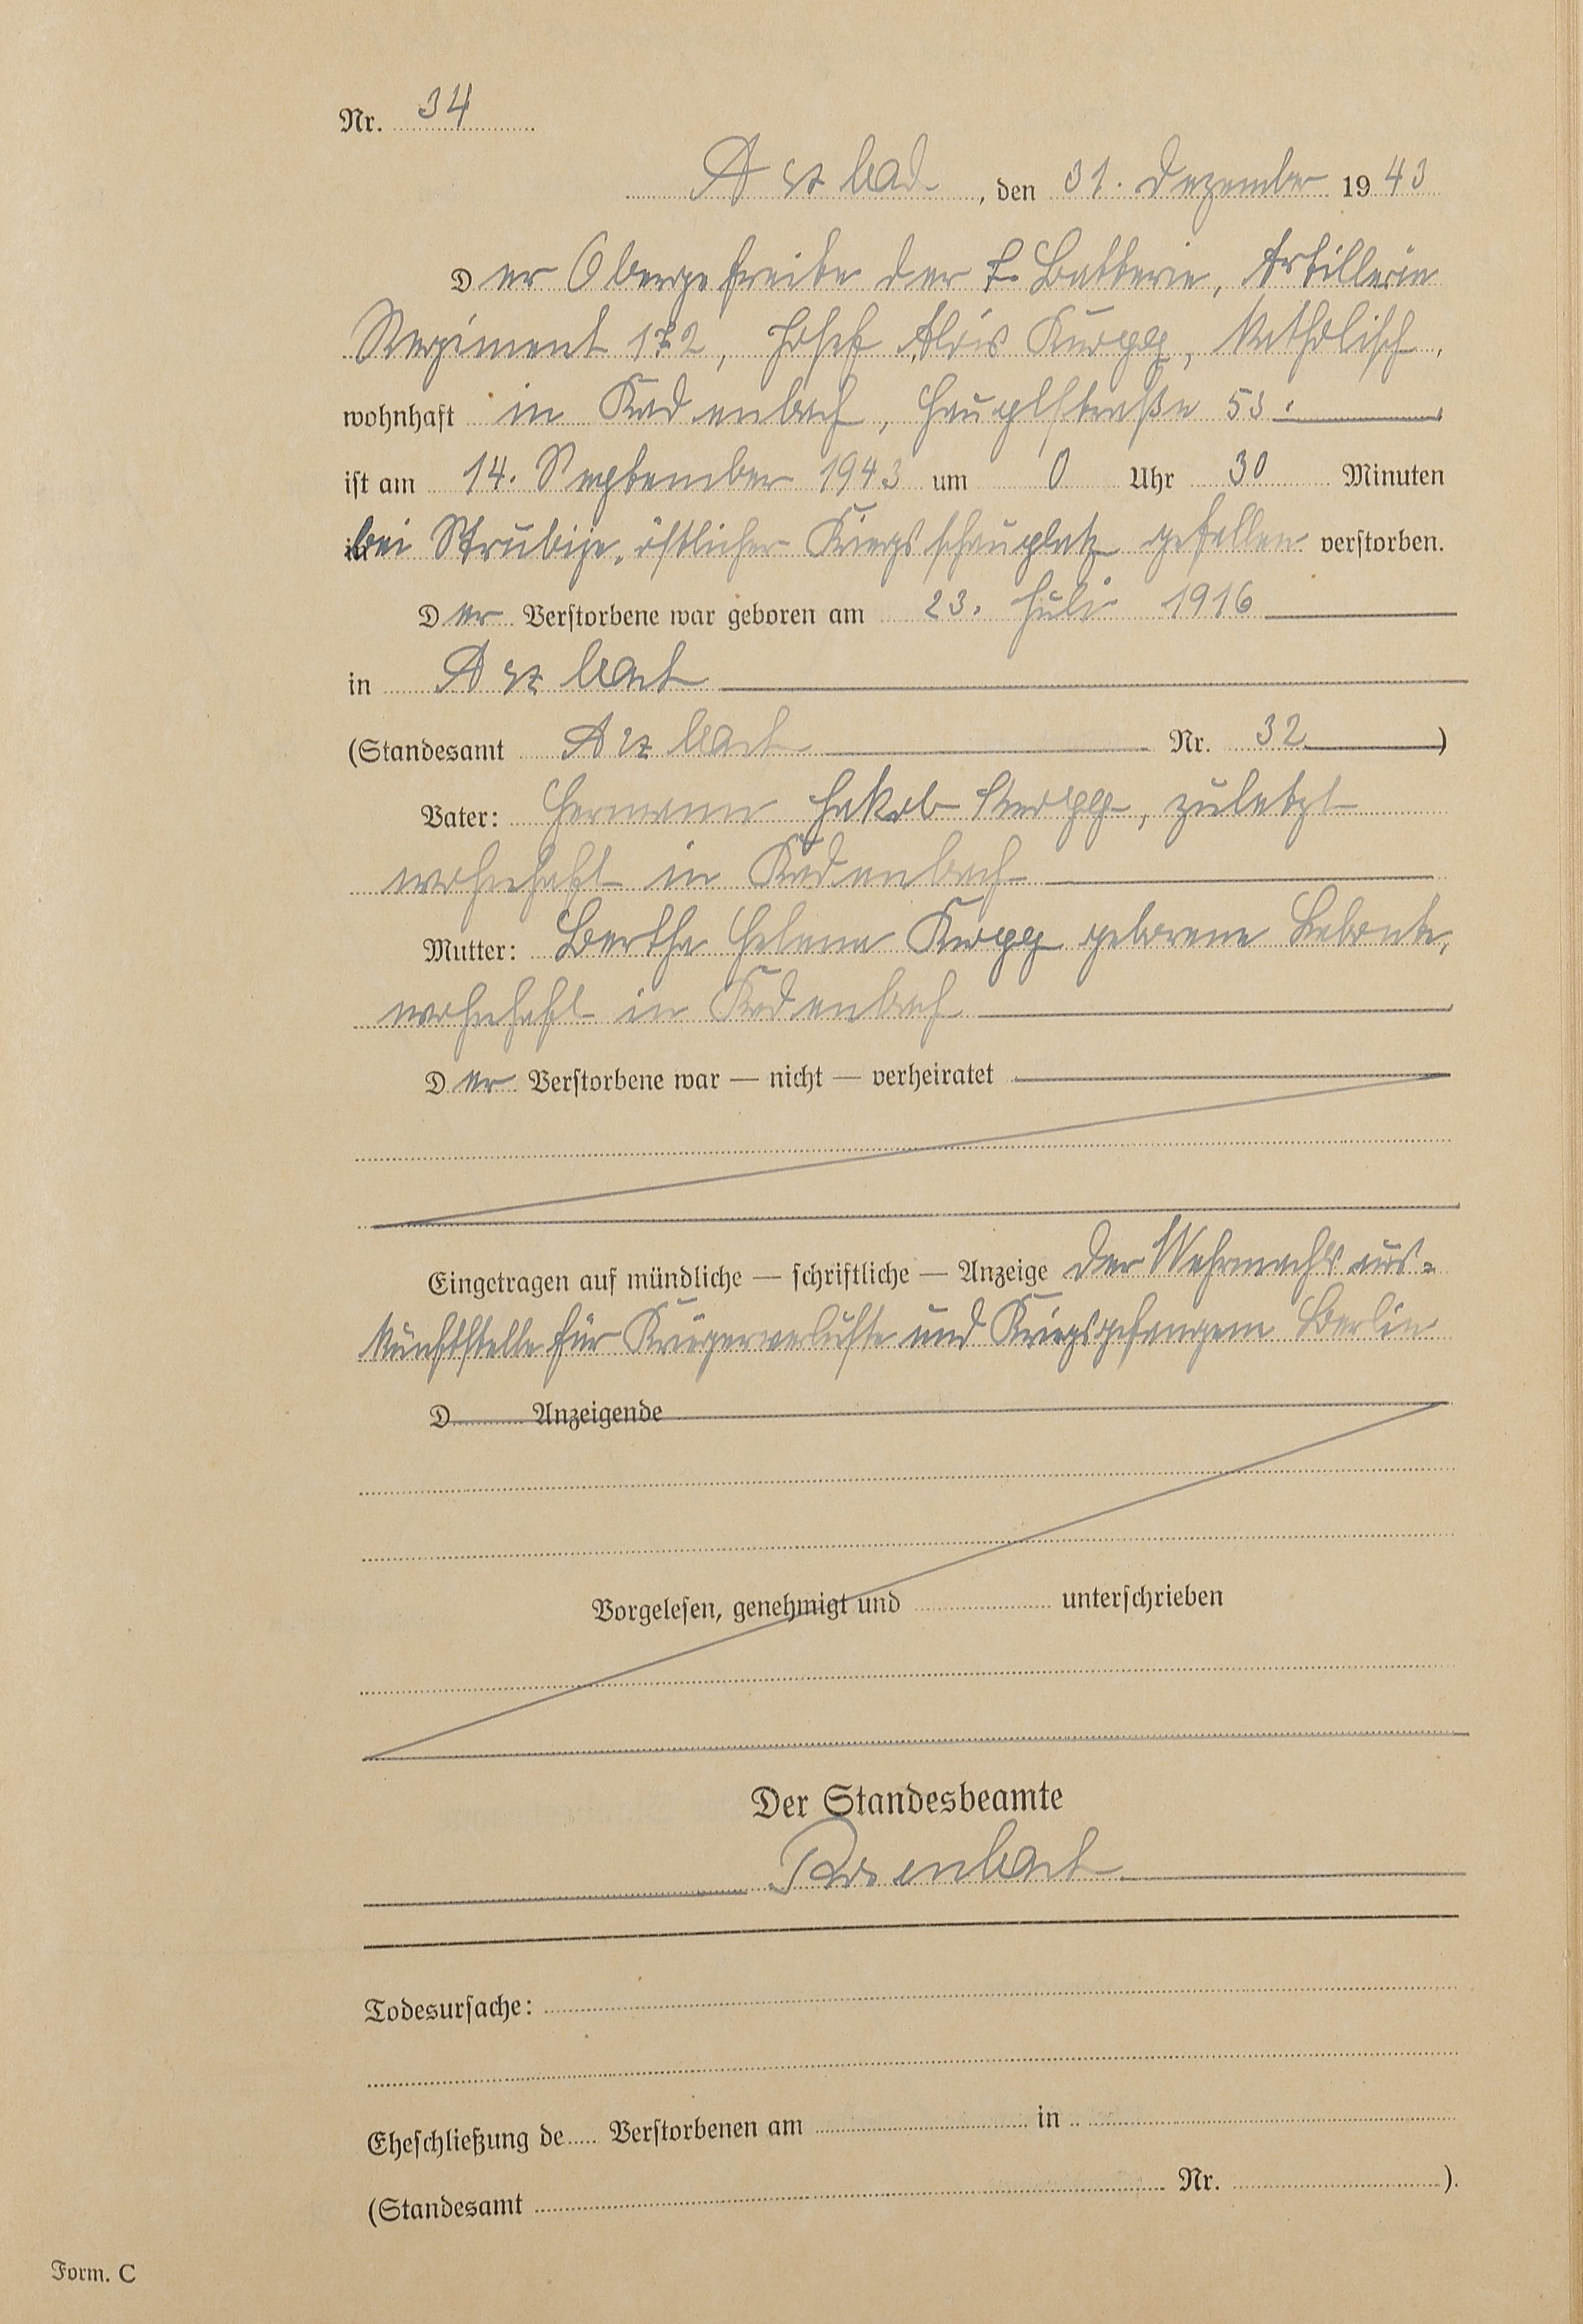 Nr. 34
Arzbach, den 31. Dezember 1943
Der Obergefreite der 7. Batterie, Artillerie
Regiment 172, Josef Alois Knopp, katholisch,
wohnhaft in Kadenbach, Hauptstraße 53.
ist am 14. September 1943 um 0 Uhr 30 Minuten
bei Strubize, östlicher Kriegsschauplatz gefallen verstorben.
Der Verstorbene war geboren am 23. Juli 1916
in Arzbach
(Standesamt Arzbach Nr. 32)
Vater: Hermann Jakob Knopp, zuletzt
wohnhaft in Kadenbach
Mutter: Bertha Helena Knopp geborene Labonte,
wohnhaft in Kadenbach
Der Verstorbene war — nicht — verheiratet
Eingetragen auf mündliche — schriftliche — Anzeige der Wehrmachtsaus-
kunftstelle für Kriegerverluste und Kriegsgefangene Berlin
D Anzeigende
Vorgelesen, genehmigt und unterschrieben
Der Standesbeamte
Rosenbach
Todesursache:
Eheschließung de Verstorbenen am in
(Standesamt Nr. ).
Form. C